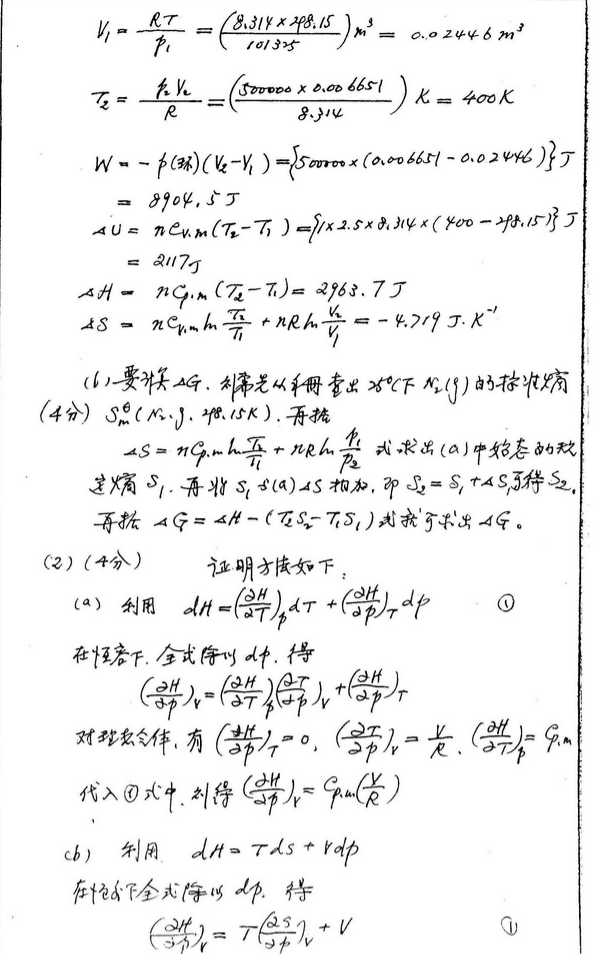 V₁ = RT/p₁ = (8.314×298.15/101325) m³ = 0.02446 m³
T₂ = p₂V₂/R = (500000×0.006651/8.314) K = 400K
W = -p(环)(V₂-V₁) = {500000×(0.006651-0.02446)} J
= 8904.5 J
ΔU = nCv.m(T₂-T₁) = {1×2.5×8.314×(400-298.15)} J
= 2117J
ΔH = nCp.m(T₂-T₁) = 2963.7 J
ΔS = nCv.m ln T₂/T₁ + nR ln V₂/V₁ = -4.719 J·K⁻¹
(b) 要计算ΔG, 则需先从手册查出25℃下N₂(g)的标准熵
(4分) Sm^θ(N₂.g.298.15K). 再据
ΔS = nCp.m ln T₂/T₁ + nR ln p₁/p₂ 式求出(a)中始态的规
定熵S₁. 再将S₁与(a)ΔS相加, 即S₂=S₁+ΔS, 可得S₂.
再据 ΔG=ΔH-(T₂S₂-T₁S₁) 式就可求出ΔG。
(2) (4分) 证明方法如下:
(a) 利用 dH=(∂H/∂T)p dT+(∂H/∂p)T dp ①
在恒容下, 全式除以dp, 得
(∂H/∂p)v=(∂H/∂T)p(∂T/∂p)v+(∂H/∂p)T
对理想气体, 有(∂H/∂p)T=0, (∂T/∂p)v=V/R, (∂H/∂T)p=Cp.m
代入①式中, 则得(∂H/∂p)v=Cp.m(V/R)
(b) 利用 dH=TdS+Vdp
在恒容下全式除以dp, 得
(∂H/∂p)v=T(∂S/∂p)v+V ①